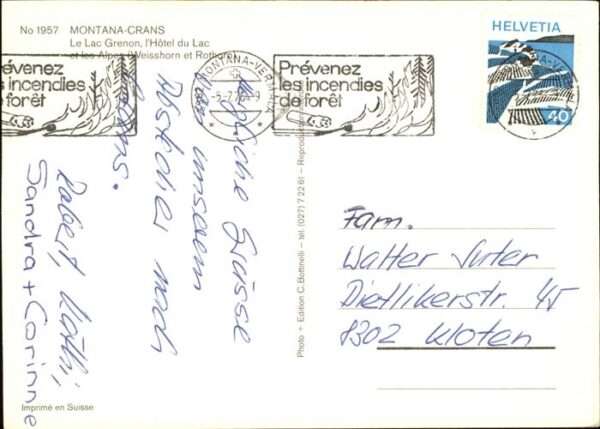 No 1957 MONTANA-CRANS
Le Lac Grenon, l'Hôtel du Lac
et les Alpes (Weisshorn et Rothorn)
Prévenez
les incendies
de forêt
MONTANA-VERMALA
Prévenez
les incendies
de forêt
HELVETIA
40
Grüsse
von unserm
Abstecher nach
Crans.
Robert, Käthi,
Sandra + Corinne
Photo + Edition C. Bottinelli – tel. (027) 7 22 61 –
Fam.
Walter Suter
Dietlikerstr. 45
8302 Kloten
Imprimé en Suisse